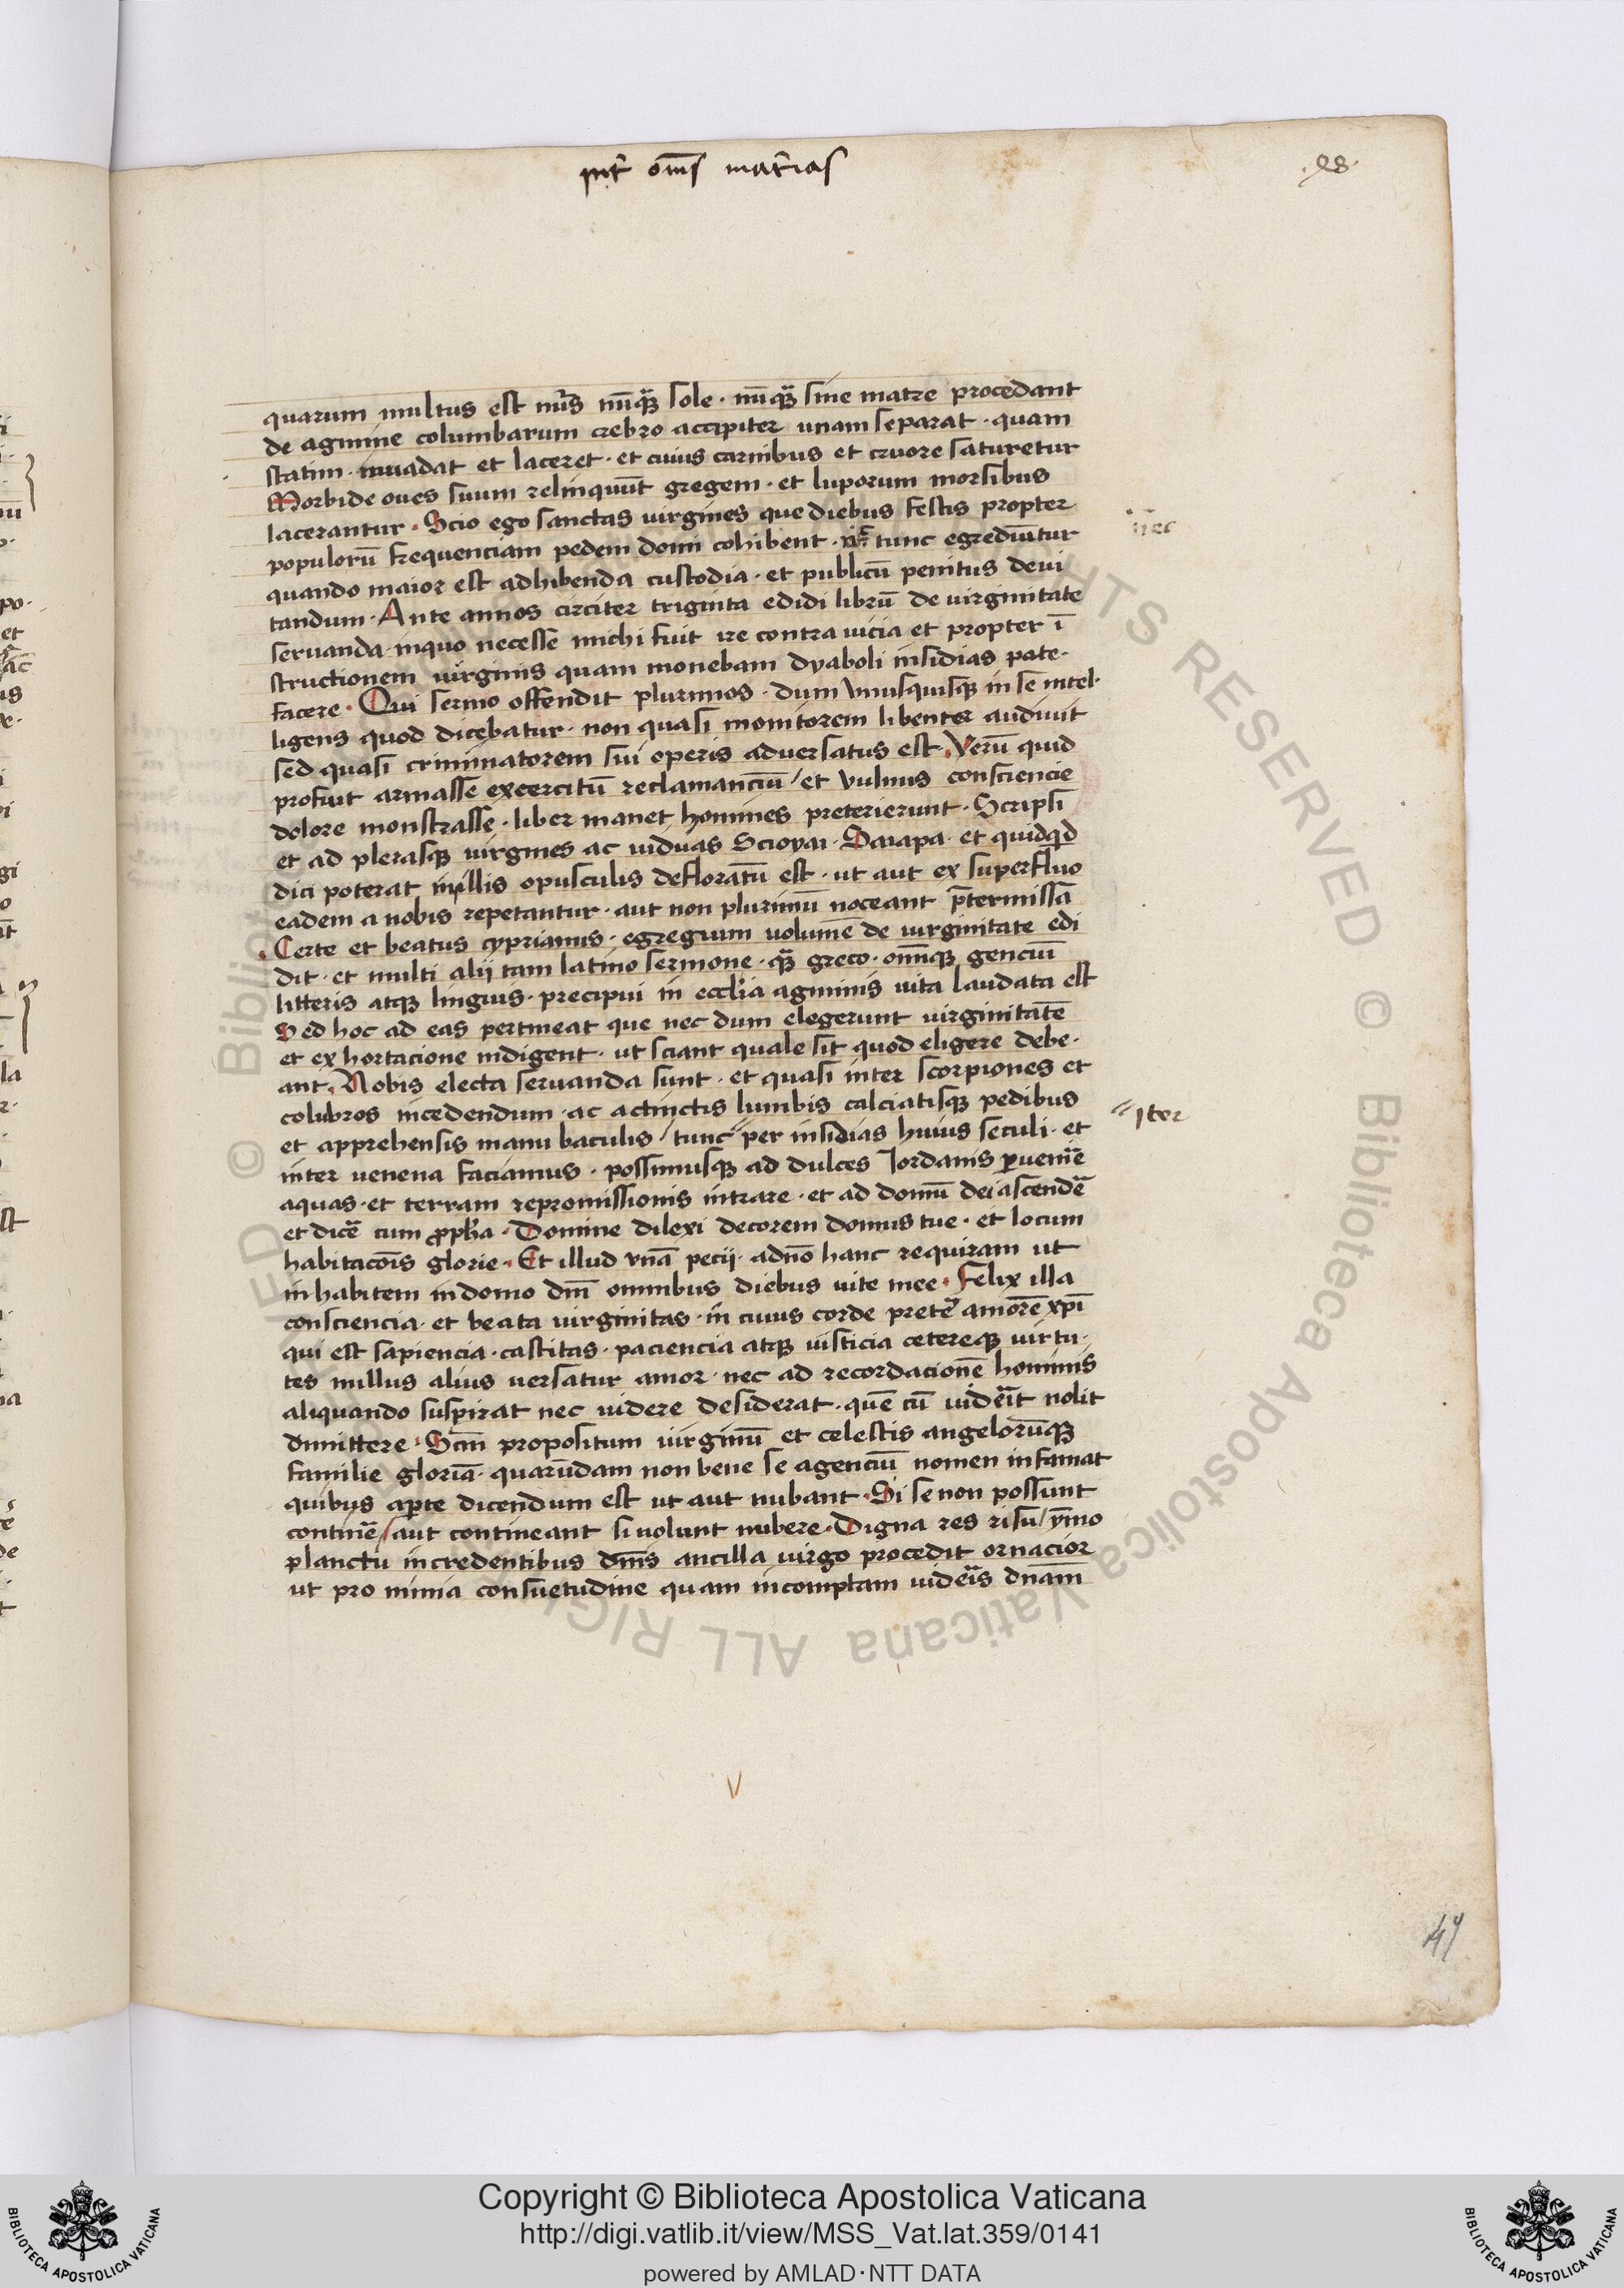 int̄ om̄s mat̄ias
.98.
quarum multus est nūs nūqꝫ sole · nūqꝫ sine matre procedant
de agmine columbarum crebro accipiter unam separat · quam
statim · inuadat et laceret · et cuius carnibus et cruore saturetur
Morbide oues suum relinquūt gregem · et luporum morsibus
lacerantur · Scio ego sanctas uirgines que diebus festis propter
populorū frequenciam pedem domi cohibent · tunc egrediūtur
quando maior est adhibenda custodia · et publicū penitus deui
tandum · Ante annos circiter triginta edidi librū de uirginitate
seruanda · inquo necesse michi fuit ire contra uicia et propter ī
structionem uirginis quam monebam dyaboli insidias pate-
facere · Qui sermo offendit plurimos · dum vnusquisqꝫ in se intel-
ligens quod dicebatur · non quasi monitorem libenter audiuit
sed quasi criminatorem sui operis aduersatus est · Verū quid
profuit armasse excercitū reclamanciū / et vulnus consciencie
dolore monstrasse · liber manet homines preterierunt · Scripsi
et ad plerasqꝫ uirgines ac uiduas Scioyai · Saiapa · et quidqd
dici poterat inillis opusculis defloratū est · ut aut ex superfluo
eadem a nobis repetantur · aut non plurimū noceant p̄termissā
Certe et beatus cyprianus · egregium uolumē de uirginitate edi
dit · et multi alij tam latino sermone · qꝫ greco · omniqꝫ genciū
litteris atqꝫ linguis · precipui in ecclīa agminis uita laudata est
Sed hoc ad eas pertineat que nec dum elegerunt uirginitatē
et ex hortacione indigent · ut sciant quale sit quod eligere debe-
ant · Nobis electa seruanda sunt · et quasi inter scorpiones et
colubros incedendum · ac actinctis lumbis calciatisqꝫ pedibus
et apprehensis manu baculis / tunc " per insidias huius seculi · et
" Iter
inter uenena faciamus · possimusqꝫ ad dulces Iordanis ꝑuenīē
aquas · et terram repromissionis intrare · et ad domū dei ascendē
et dicē cum ꝓpha · Domine dilexi decorem domus tue · et locum
habitacōis glorie · Et illud vnā pecij · adnō hanc requiram ut
inhabitem in domo dn̄i omnibus diebus uite mee · Felix illa
consciencia · et beata uirginitas · in cuius corde pretē amorē xp̄i
qui est sapiencia · castitas · paciencia atqꝫ iusticia cetereqꝫ uirtu-
tes nullus alius uersatur amor · nec ad recordacionē hominis
aliquando suspirat nec uidere desiderat · quē cū uidēit nolit
dimittere · Scm̄ propositum uirginū et celestis angelorūqꝫ
familie gloriā · quarūdam non bene se agenciū nomen infamat
quibus aꝑte dicendum est ut aut nubant · Si se non possunt
continē / aut contineant si uolunt nubere · Digna res risu / ymo
planctu in credentibus dn̄is ancilla virgo procedit ornacior
ut pro nimia consuetudine quam incomptam uidēis dnam̄
49
Copyright © Biblioteca Apostolica Vaticana
http://digi.vatlib.it/view/MSS_Vat.lat.359/0141
powered by AMLAD·NTT DATA
BIBLIOTECA APOSTOLICA VATICANA
BIBLIOTECA APOSTOLICA VATICANA
© Biblioteca Apostolica Vaticana ALL RIGHTS RESERVED